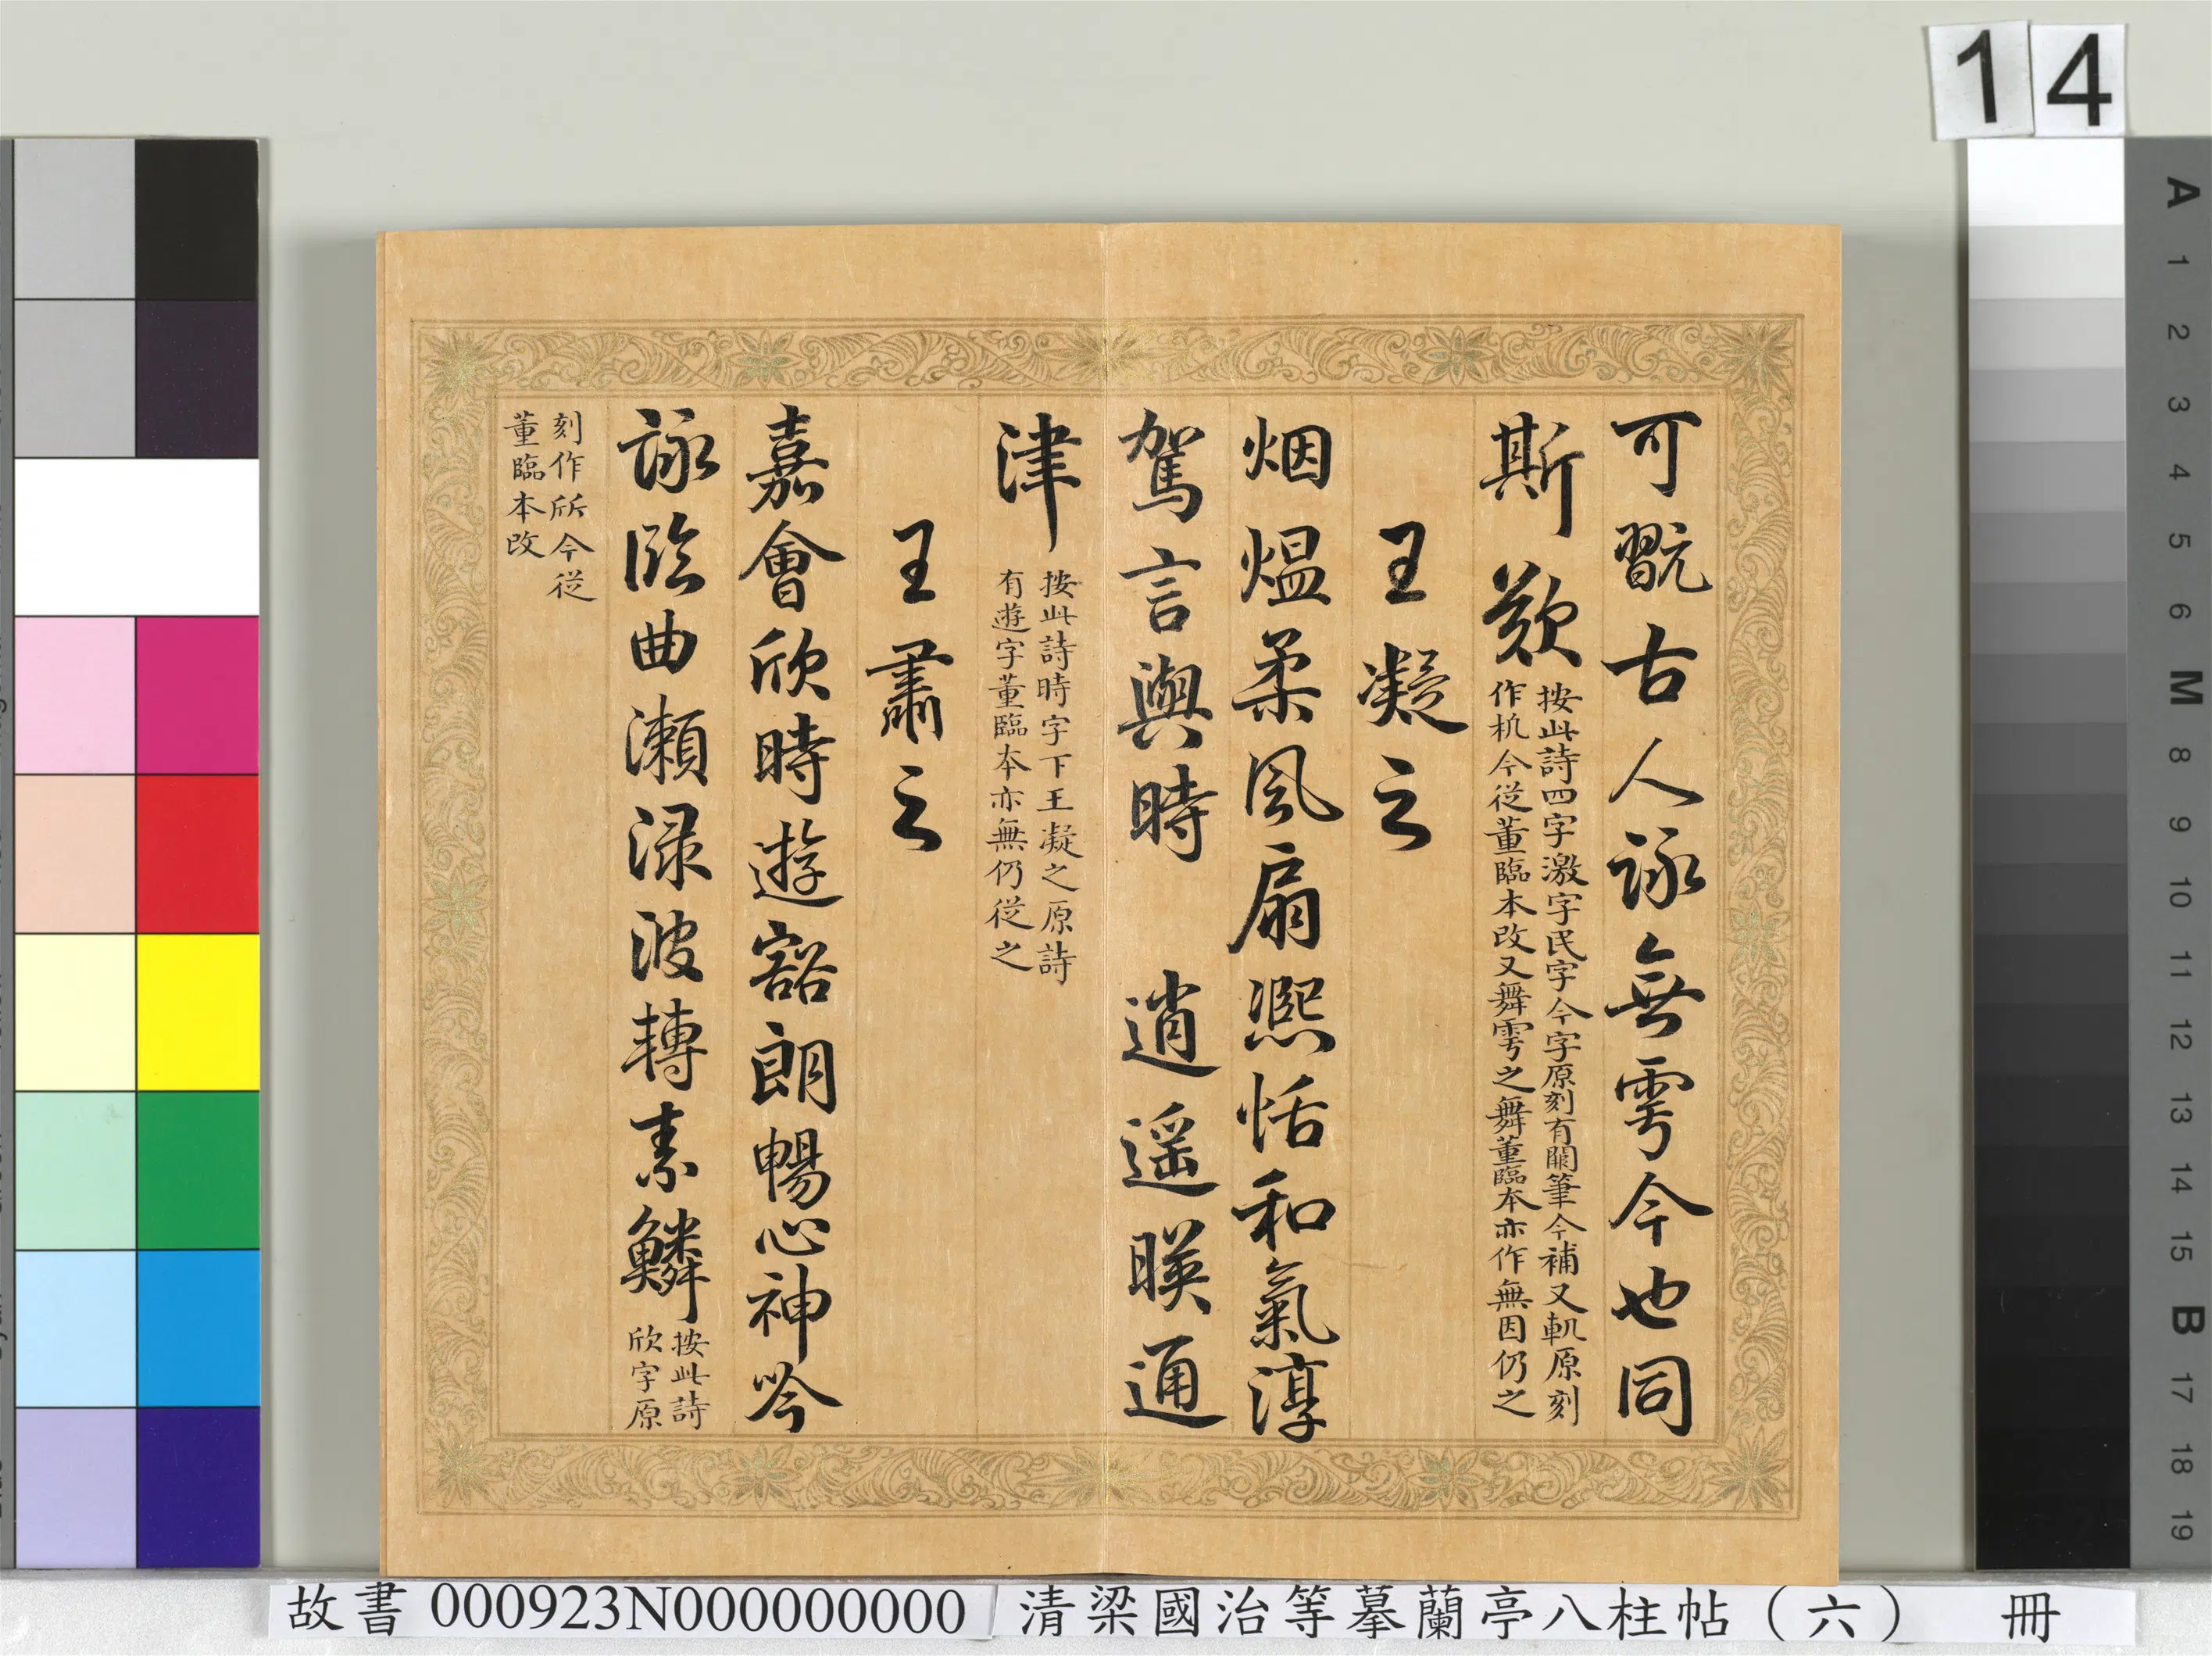 14
可翫古人詠無雩今也同
斯歎
按此詩四字激字民字今字原刻有闕筆今補又軏原刻
作机今從董臨本改又舞雩之舞董臨本亦作無因仍之
王凝之
烟熅柔風扇熈恬和氣淳
駕言興時逍遥暎通
津
按此詩時字下王凝之原詩
有遊字董臨本亦無仍從之
王肅之
嘉會欣時遊豁朗暢心神吟
詠臨曲瀨渌波轉素鱗
按此詩
欣字原
刻作所今從
董臨本改
A
1
2
3
4
5
6
M
8
9
10
11
12
13
14
15
B
17
18
19
故書 000923N000000000 清梁國治等摹蘭亭八柱帖（六） 冊